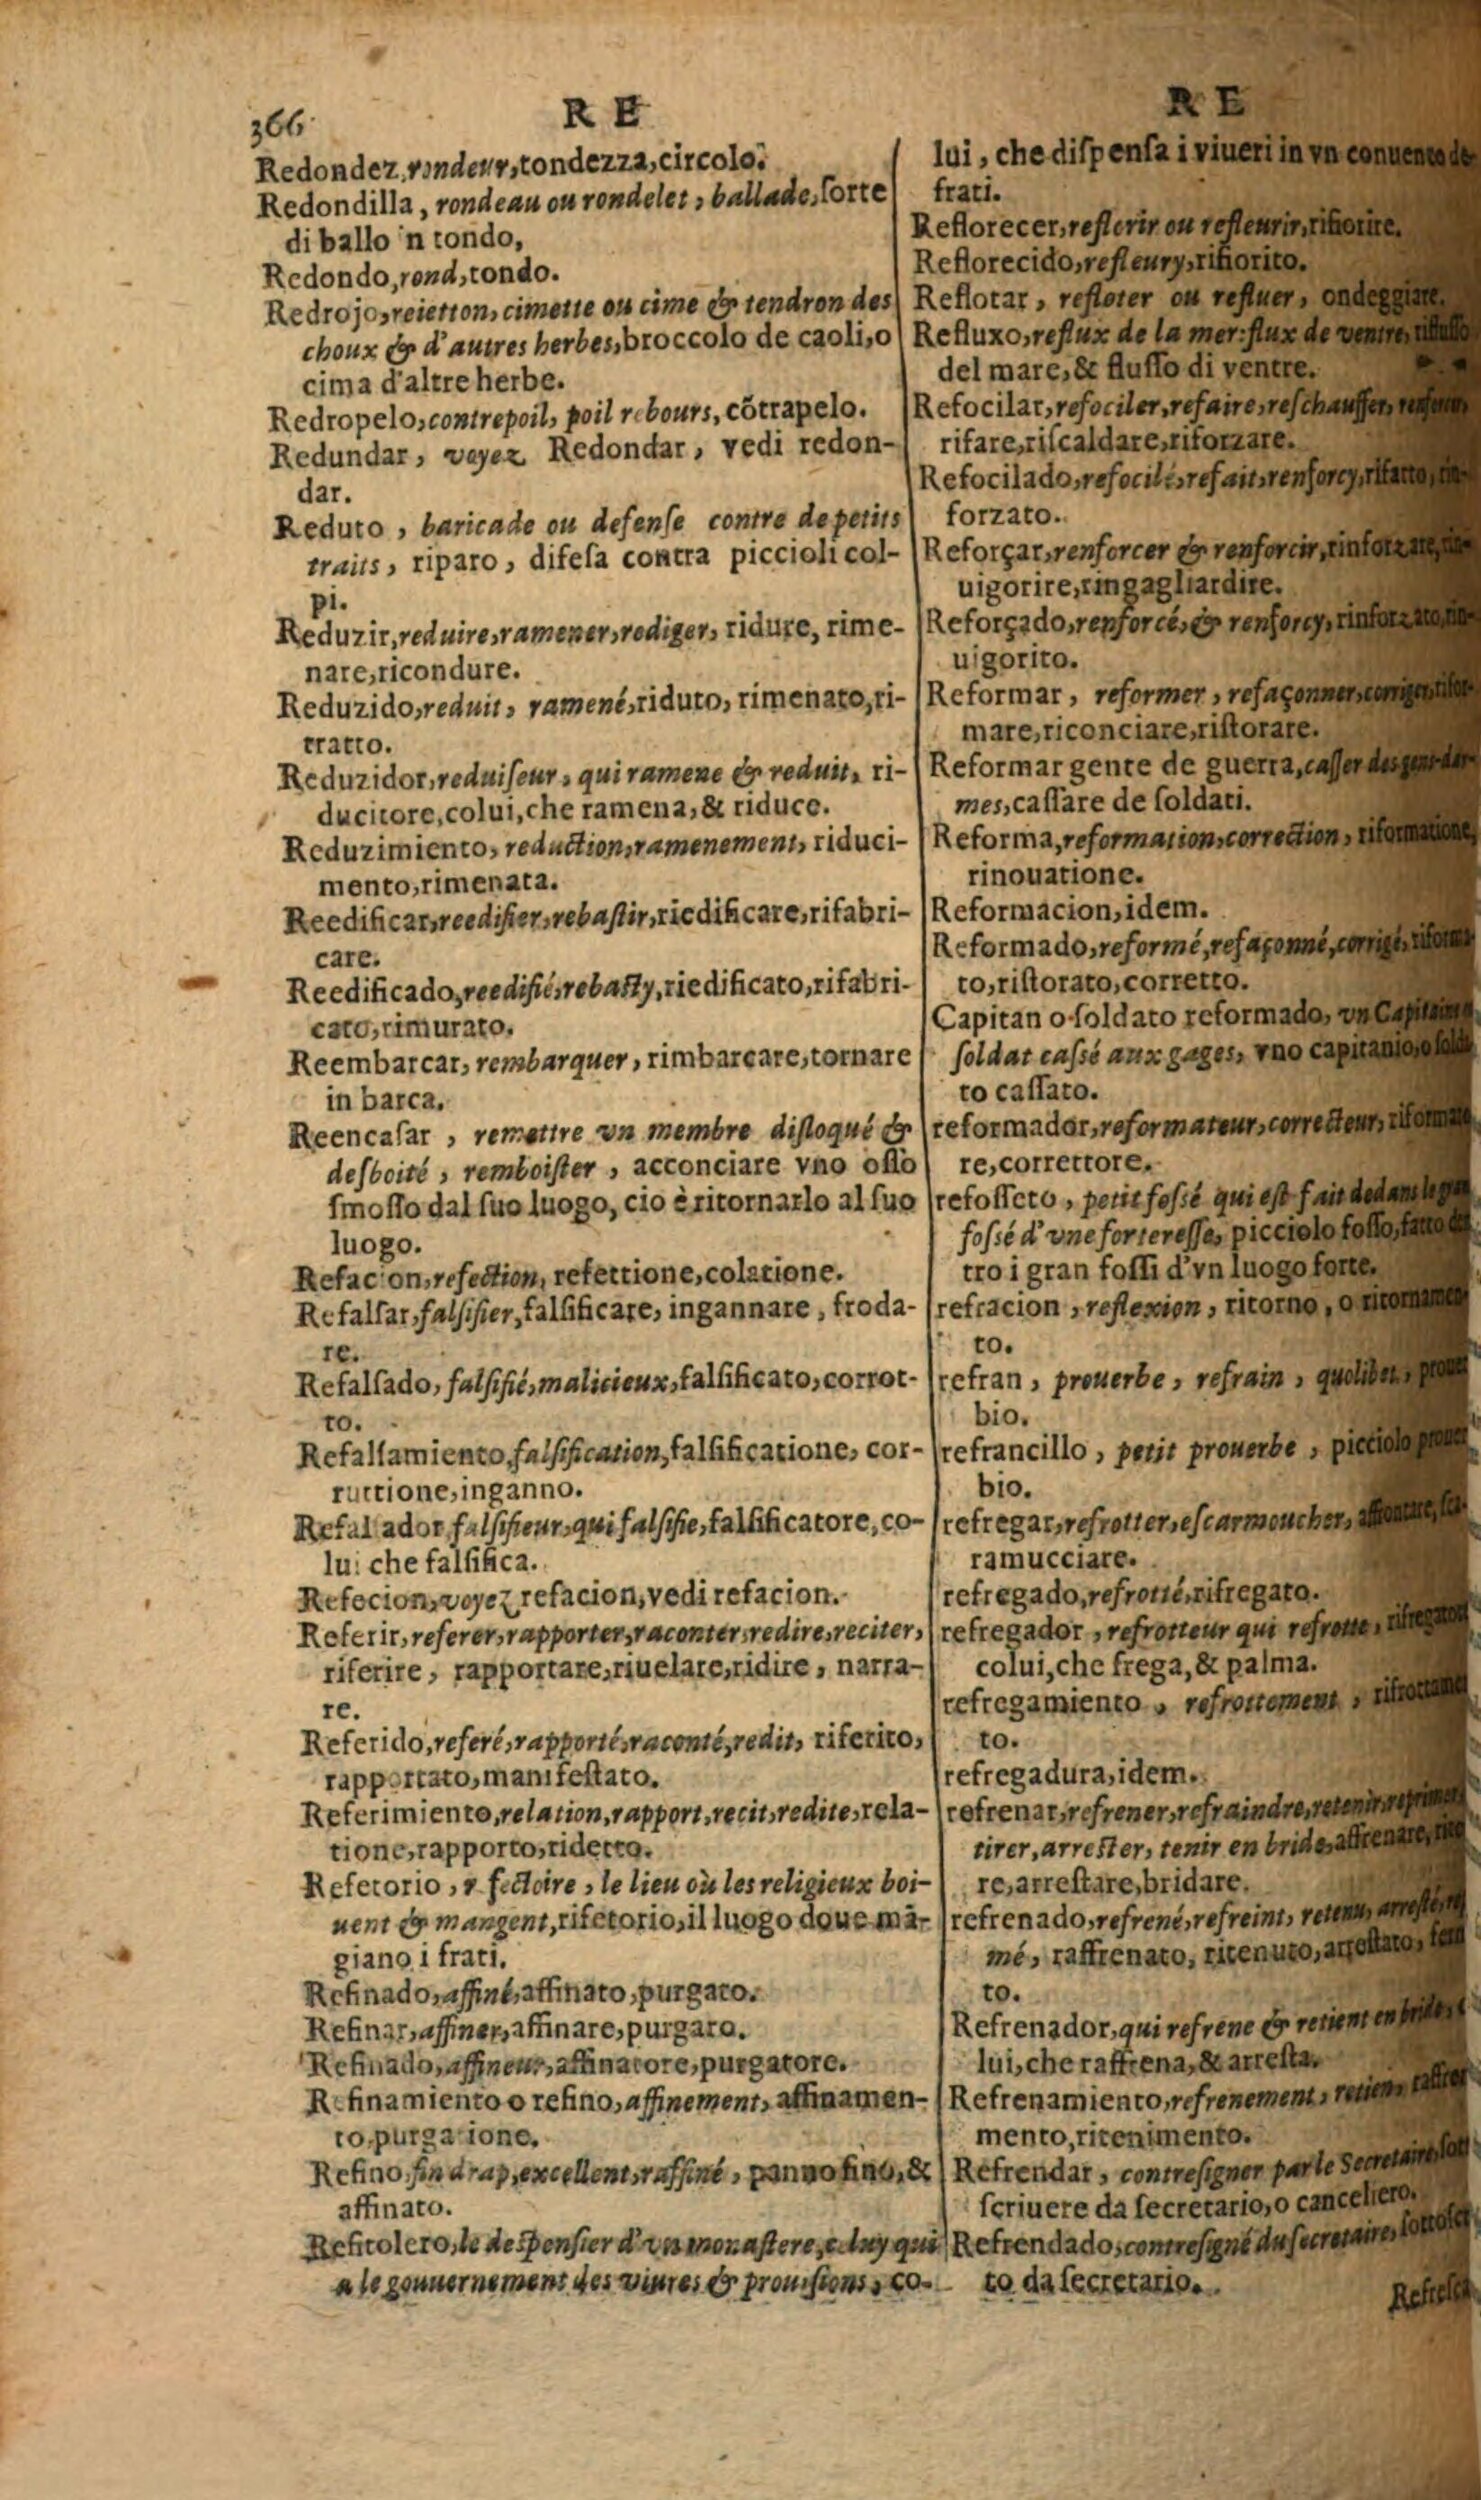 366
R E
R E
Redondez, rondeur, tondezza, circolo.
Redondilla, rondeau ou rondelet, ballade, ſorte
di ballo 'n tondo,
Redondo, rond, tondo.
Redrojo, reietton, cimette ou cime & tendron des
choux & d'autres herbes, broccolo de caoli, o
cima d'altre herbe.
Redropelo, contrepoil, poil rebours, cõtrapelo.
Redundar, voyez Redondar, vedi redon-
dar.
Reduto, baricade ou defenſe contre de petits
traits, riparo, difeſa contra piccioli col-
pi.
Reduzir, reduire, ramener, rediger, ridure, rime-
nare, ricondure.
Reduzido, reduit, ramené, riduto, rimenato, ri-
tratto.
Reduzidor, reduiſeur, qui ramene & reduit, ri-
ducitore, colui, che ramena, & riduce.
Reduzimiento, reduction, ramenement, riduci-
mento, rimenata.
Reedificar, reedifier, rebaſtir, riedificare, rifabri-
care.
Reedificado, reedifié, rebaſty, riedificato, rifabri-
cato, rimurato.
Reembarcar, rembarquer, rimbarcare, tornare
in barca.
Reencaſar, remettre vn membre diſloqué &
deſboité, remboiſter, acconciare vno oſſo
ſmoſſo dal ſuo luogo, cio è ritornarlo al ſuo
luogo.
Refacion, refection, refettione, colatione.
Refalſar, falſifier, falſificare, ingannare, froda-
re.
Refalſado, falſifié, malicieux, falſificato, corrot-
to.
Refalſamiento, falſification, falſificatione, cor-
ruttione, inganno.
Refal ador, falſifieur, qui falſifie, falſificatore, co-
lui che falſifica.
Refecion, voyez refacion, vedi refacion.
Referir, referer, rapporter, raconter, redire, reciter,
riferire, rapportare, riuelare, ridire, narra-
re.
Referido, referé, rapporté, raconté, redit, riferito,
rapportato, manifeſtato.
Referimiento, relation, rapport, recit, redite, rela-
tione, rapporto, ridetto.
Refetorio, refectoire, le lieu où les religieux boi-
uent & mangent, rifetorio, il luogo doue mã-
giano i frati.
Refinado, affiné, affinato, purgato.
Refinar, affiner, affinare, purgaro.
Refinado, affineur, affinatore, purgatore.
Refinamiento o refino, affinement, affinamen-
to, purgatione.
Refino, fin drap, excellent, raffiné, panno fino, &
affinato.
Refitolero, le deſpenſier d'vn monaſtere, celuy qui
a le gouuernement des viures & prouiſions, co-
lui, che diſpenſa i viueri in vn conuento de
frati.
Reflorecer, reflorir ou refleurir, rifiorire.
Reflorecido, refleury, rifiorito.
Reflotar, refloter ou refluer, ondeggiare.
Refluxo, reflux de la mer: flux de ventre, rifluſſo
del mare, & fluſſo di ventre.
Refocilar, refociler, refaire, reſchauffer, renforcer,
rifare, riſcaldare, riforzare.
Refocilado, refocilé, refait, renforcy, rifatto, rin-
forzato.
Reforçar, renforcer & renforcir, rinforzare, rin-
uigorire, ringagliardire.
Reforçado, renforcé, & renforcy, rinforzato, rin-
uigorito.
Reformar, reformer, refaçonner, corriger, rifor-
mare, riconciare, riſtorare.
Reformar gente de guerra, caſſer des gens-dar-
mes, caſſare de ſoldati.
Reforma, reformation, correction, riformatione,
rinouatione.
Reformacion, idem.
Reformado, reformé, refaçonné, corrigé, riforma-
to, riſtorato, corretto.
Capitan o ſoldato reformado, vn Capitaine
ſoldat caſſé aux gages, vno capitanio, o ſolda
to caſſato.
reformador, reformateur, correcteur, riformato
re, correttore.
refoſſeto, petit foſſé qui eſt fait dedans le gran
foſſé d'vne forterelle, picciolo foſſo, fatto den
tro i gran foſſi d'vn luogo forte.
refracion, reflexion, ritorno, o ritornamen
to.
refran, prouerbe, refrain, quolibet, prouer
bio.
refrancillo, petit prouerbe, picciolo prouer
bio.
refregar, refrotter, eſcarmoucher, affrontare, ſca-
ramucciare.
refregado, refrotté, rifregato.
refregador, refrotteur qui refrotte, rifregatore
colui, che frega, & palma.
refregamiento, refrottement, rifrottamen
to.
refregadura, idem.
refrenar, refrener, refraindre, retenir, reprimer,
tirer, arreſter, tenir en bride, affrenare,
re, arreſtare, bridare.
refrenado, refrené, refreint, retenu, arreſté,
mé, raffrenato, ritenuto, arreſtato,
to.
Refrenador, qui refrene & retient en bride,
lui, che raffrena, & arreſta.
Refrenamiento, refrenement, retien, raffrena
mento, ritenimento.
Refrendar, contreſigner par le Secretaire, ſott
ſcriuere da ſecretario, o canceliero.
Refrendado, contreſigné du ſecretaire, ſottoſcr
to da ſecretario.
Refreſca